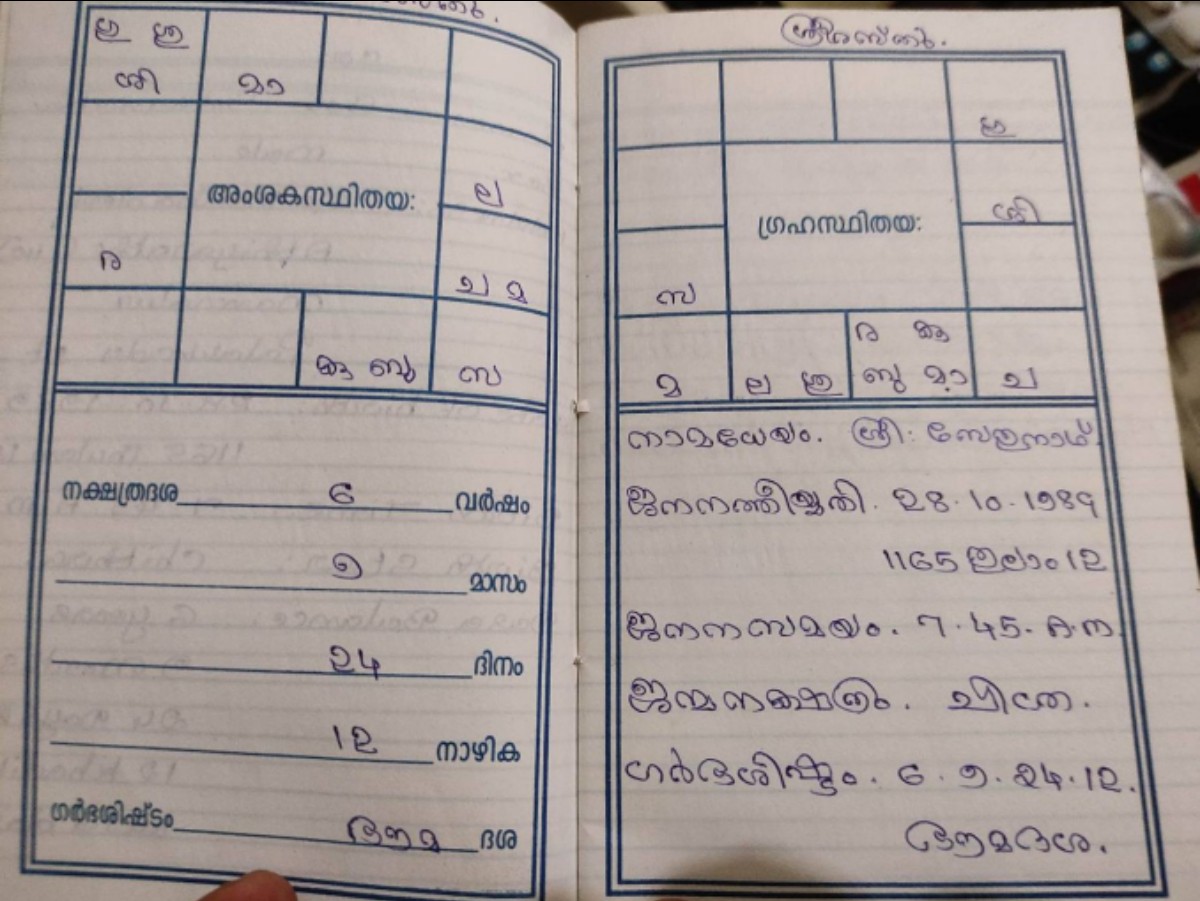 ശി മാ
അംശകസ്ഥിതയഃ
ല
ര
ച മ
കു ബു സ
നക്ഷത്രദശ 6 വർഷം
9 മാസം
24 ദിനം
12 നാഴിക
ഗർഭശിഷ്ടം ഭൗമ ദശ
ശ്രീരസ്തു.
ഗ്രഹസ്ഥിതയഃ
സ
ര കു
മ ല ബു മാ ച
നാമധേയം. ശ്രീ:
ജനനത്തീയ്യതി. 28.10.1989
1165 തുലാം 12
ജനനസമയം. 7.45. A.M
ജന്മനക്ഷത്രം. ചിത്ര.
ഗർഭശിഷ്ടം. 6. 9. 24. 12.
ഭൗമദശ.